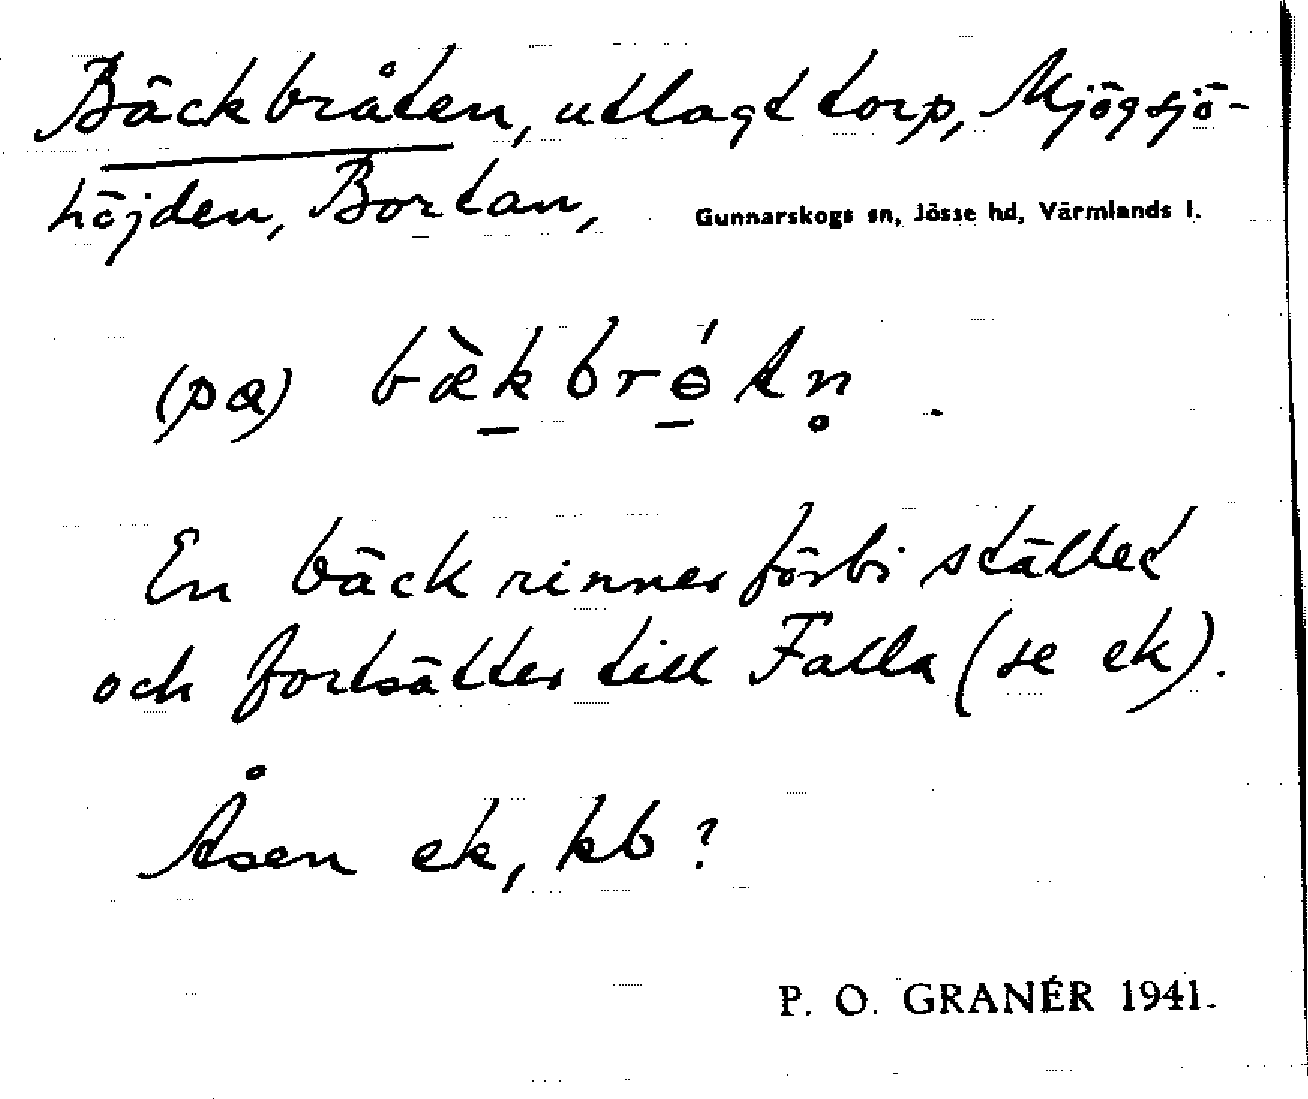 Bäckbråten, utlagt torp, Mjögsjö-
höjden, Bortan, Gunnarskogs sn, Jösse hd, Värmlands l.
(pα) bæ̀k̲brɵ̲́tn̥.
En bäck rinner förbi stället
och fortsätter till Falla (se ek).
Åsen ek, kb?
P. O. GRANÉR 1941.